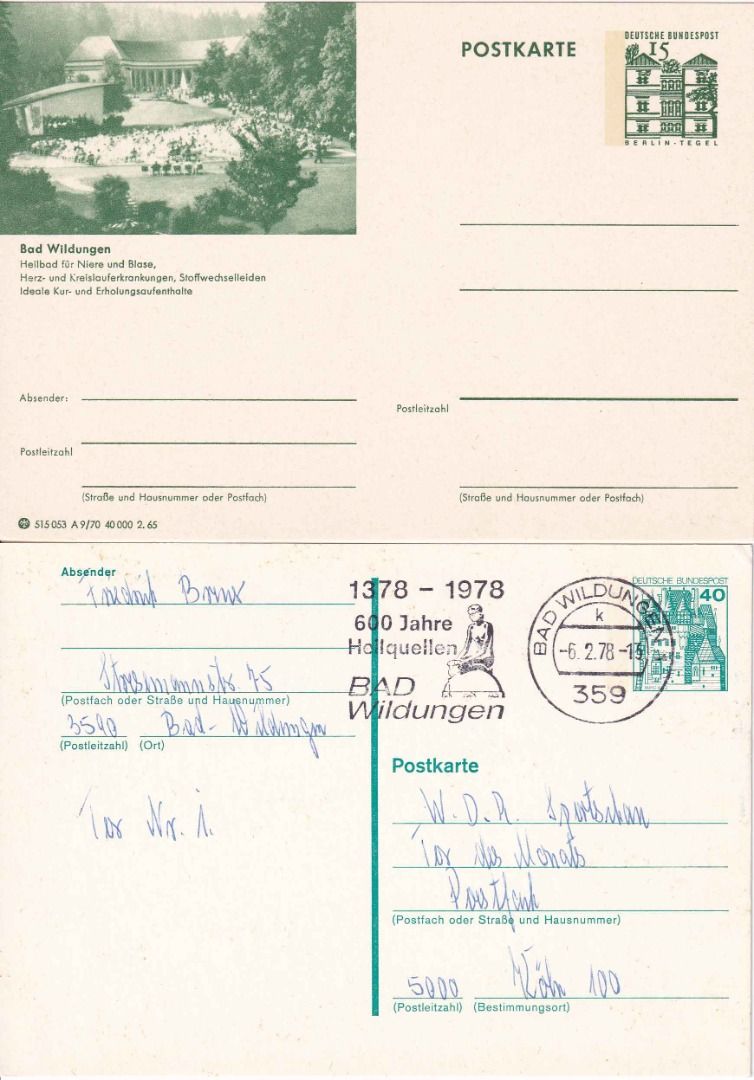 POSTKARTE
DEUTSCHE BUNDESPOST
15
BERLIN-TEGEL
Bad Wildungen
Heilbad für Niere und Blase,
Herz- und Kreislauferkrankungen, Stoffwechselleiden
Ideale Kur- und Erholungsaufenthalte
Absender:
Postleitzahl
Postleitzahl
(Straße und Hausnummer oder Postfach)
(Straße und Hausnummer oder Postfach)
515 053 A 9/70 40 000 2. 65
Absender
Friedrich
1378 – 1978
600 Jahre
Heilquellen
BAD
Wildungen
BAD WILDUNGEN
k
-6. 2.78 -15
359
DEUTSCHE BUNDESPOST
40
Stresemannstr. 75
(Postfach oder Straße und Hausnummer)
3590 Bad-Wildungen
(Postleitzahl) (Ort)
Tor Nr. 1.
Postkarte
W.D.R. Sportschau
Tor des Monats
Postfach
(Postfach oder Straße und Hausnummer)
5000 Köln 100
(Postleitzahl) (Bestimmungsort)